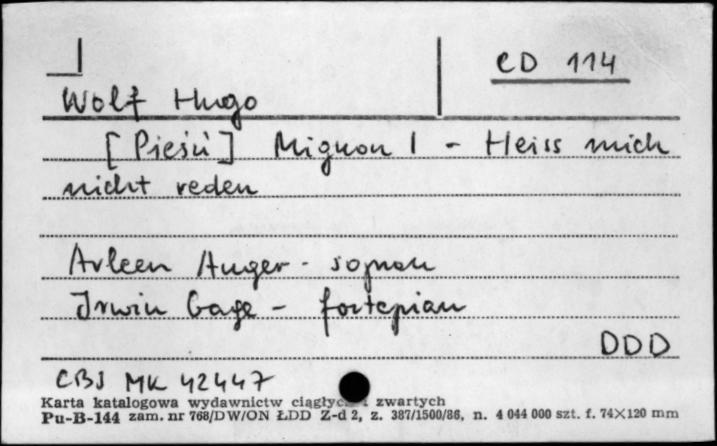 CD 114
Wolf Hugo
[Pieśń] Mignon I - Heiss mich
nicht reden
Arleen Auger - sopran
Irwin Gage - fortepian
DDD
CBS MK 42447
Karta katalogowa wydawnictw ciągłych i zwartych
Pu-B-144 zam. nr 768/DW/ON ŁDD Z-d 2, z. 387/1500/86, n. 4 044 000 szt. f. 74×120 mm